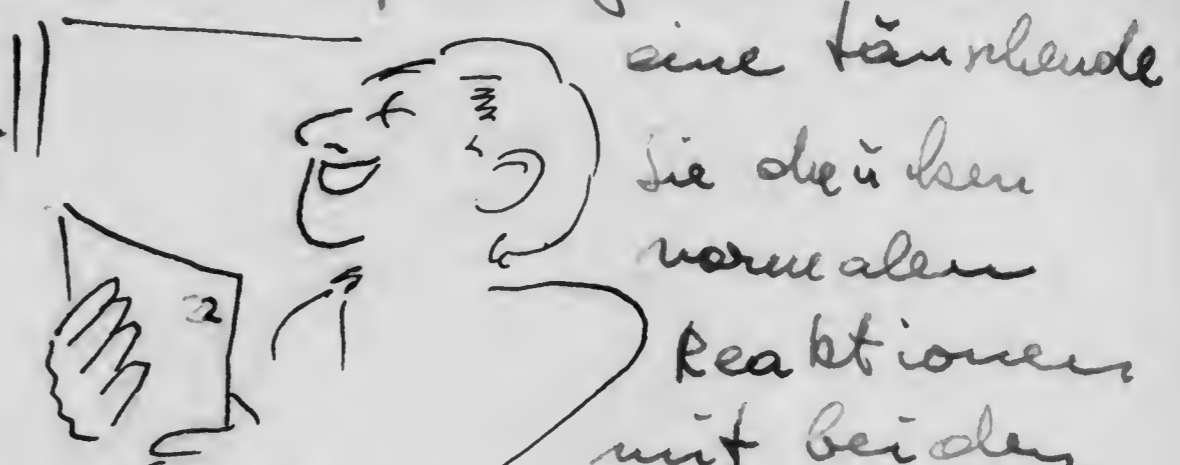 eine täuschende
Sie drücken
normalen
Reaktionen
mit beiden